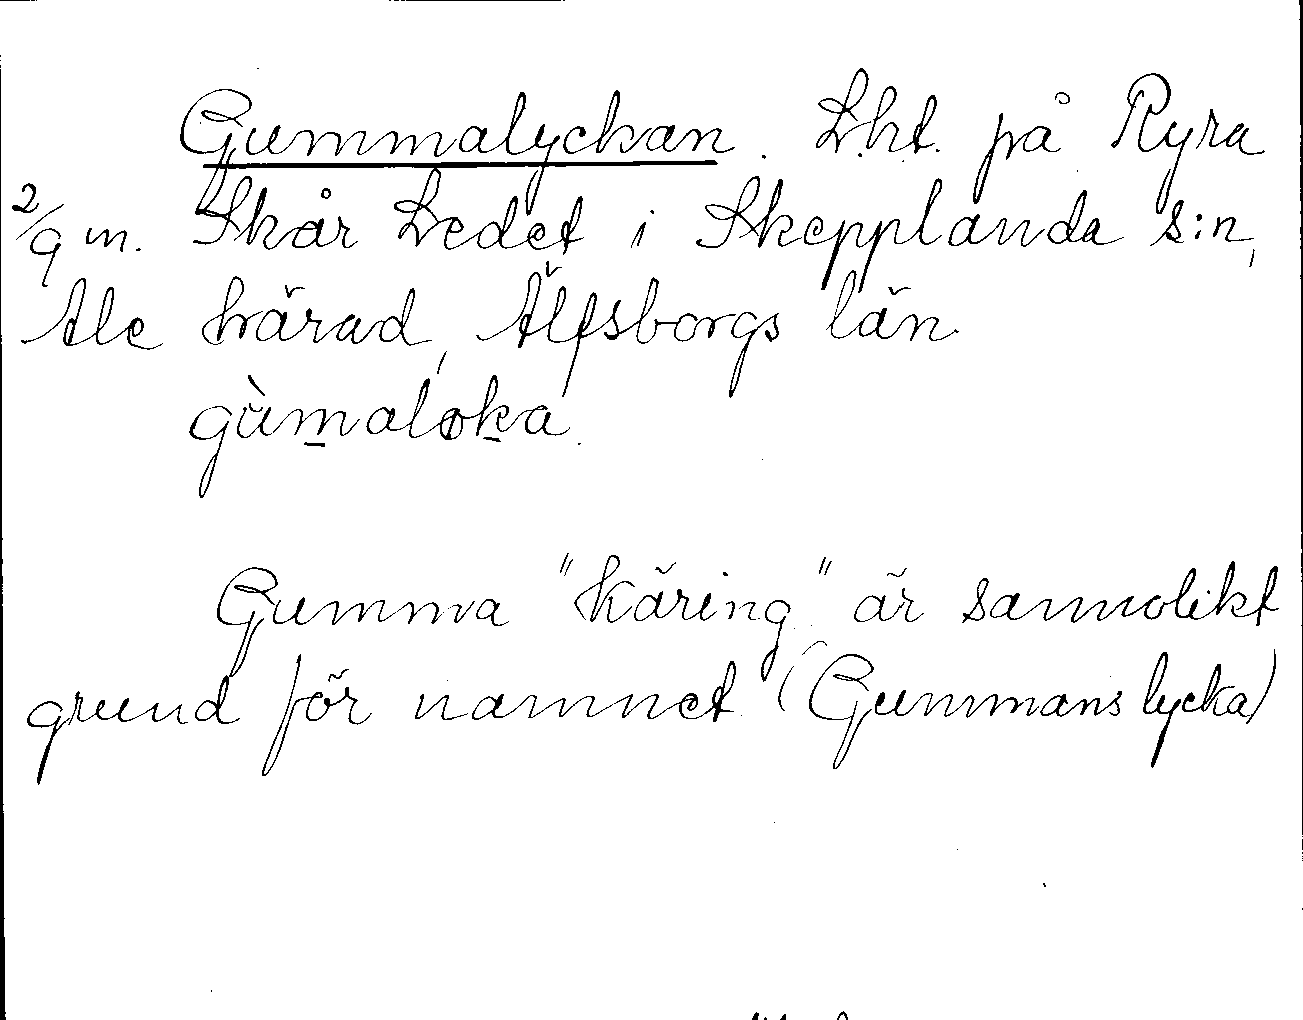 Gummalyckan. Lht. på Ryra
2/9 m. Skår Ledet i Skepplanda s:n,
Ale härad, Älfsborgs län.
gùm̲aløk̲a.
Gumma "käring" är sannolikt
grund för namnet (Gummans lycka)